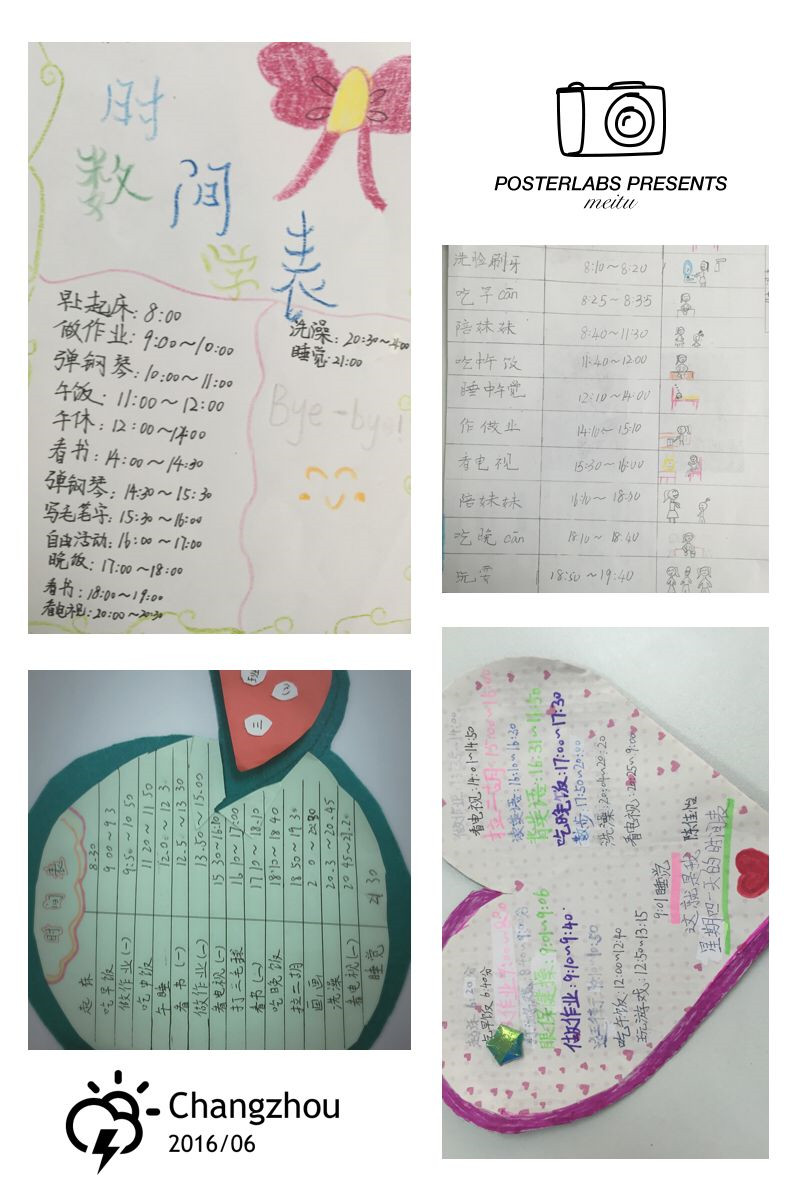 时
数 间
学 表
早上起床：8:00
做作业：9:00~10:00
弹钢琴：10:00~11:00
午饭：11:00~12:00
午休：12:00~14:00
看书：14:00~14:30
弹钢琴：14:30~15:30
写毛笔字：15:30~16:00
自由活动：16:00~17:00
晚饭：17:00~18:00
看书：18:00~19:00
看电视：20:00~20:30
洗澡：20:30~
睡觉：21:00
Bye-bye!
POSTERLABS PRESENTS
meitu
洗脸刷牙 8:10~8:20
吃早cān 8:25~8:35
陪妹妹 8:40~11:30
吃中午饭 11:40~12:00
睡中午觉 12:10~14:00
作做业 14:10~15:10
看电视 15:30~16:00
陪妹妹 16:10~18:00
吃晚cān 18:10~18:40
玩耍 18:50~19:40
三
(2)
时间表
起床 8.30
吃早饭 9.00~9.3
做作业(一) 9:50~10 50
吃中饭 11 20~11 50
午睡 12.00~12 3
看书(一) 12.5~13 30
做作业(一) 13.50~15.00
看电视(一) 15 30~16:10
打二毛球 16 10~17:00
看书(一) 17 10~18:10
吃晚饭 18:10~18 40
拉二胡 18 50~19 30
国画
洗澡 20.3~20.45
看电视(一) 20 45~21.20
睡觉 21 30
吃早饭 6:40分
眼保健操：9:01~9:06
做作业：9:10~9:40
吃午饭：12:00~12:40
玩游戏：12:50~13:15
看电视：14:01~14:50
拉二胡：15:00~16:00
读英语：16:10~16:30
背英语：16:31~16:50
吃晚饭：17:00~17:30
散步：17:50~20:00
洗澡：20:01~20:20
看电视：20:25~9:00
9:01睡觉
这就是我 陈佳怡
星期四一天的时间表
Changzhou
2016/06